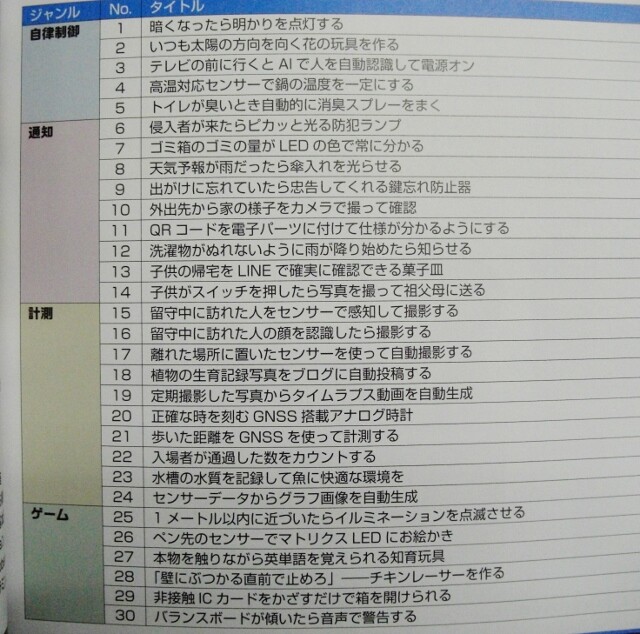 ジャンル No. タイトル
自律制御 1 暗くなったら明かりを点灯する
2 いつも太陽の方向を向く花の玩具を作る
3 テレビの前に行くとAIで人を自動認識して電源オン
4 高温対応センサーで鍋の温度を一定にする
5 トイレが臭いとき自動的に消臭スプレーをまく
通知 6 侵入者が来たらピカッと光る防犯ランプ
7 ゴミ箱のゴミの量がLEDの色で常に分かる
8 天気予報が雨だったら傘入れを光らせる
9 出がけに忘れていたら忠告してくれる鍵忘れ防止器
10 外出先から家の様子をカメラで撮って確認
11 QRコードを電子パーツに付けて仕様が分かるようにする
12 洗濯物がぬれないように雨が降り始めたら知らせる
13 子供の帰宅をLINEで確実に確認できる菓子皿
14 子供がスイッチを押したら写真を撮って祖父母に送る
計測 15 留守中に訪れた人をセンサーで感知して撮影する
16 留守中に訪れた人の顔を認識したら撮影する
17 離れた場所に置いたセンサーを使って自動撮影する
18 植物の生育記録写真をブログに自動投稿する
19 定期撮影した写真からタイムラプス動画を自動生成
20 正確な時を刻むGNSS搭載アナログ時計
21 歩いた距離をGNSSを使って計測する
22 入場者が通過した数をカウントする
23 水槽の水質を記録して魚に快適な環境を
24 センサーデータからグラフ画像を自動生成
ゲーム 25 1メートル以内に近づいたらイルミネーションを点滅させる
26 ペン先のセンサーでマトリクスLEDにお絵かき
27 本物を触りながら英単語を覚えられる知育玩具
28 「壁にぶつかる直前で止めろ」――チキンレーサーを作る
29 非接触ICカードをかざすだけで箱を開けられる
30 バランスボードが傾いたら音声で警告する